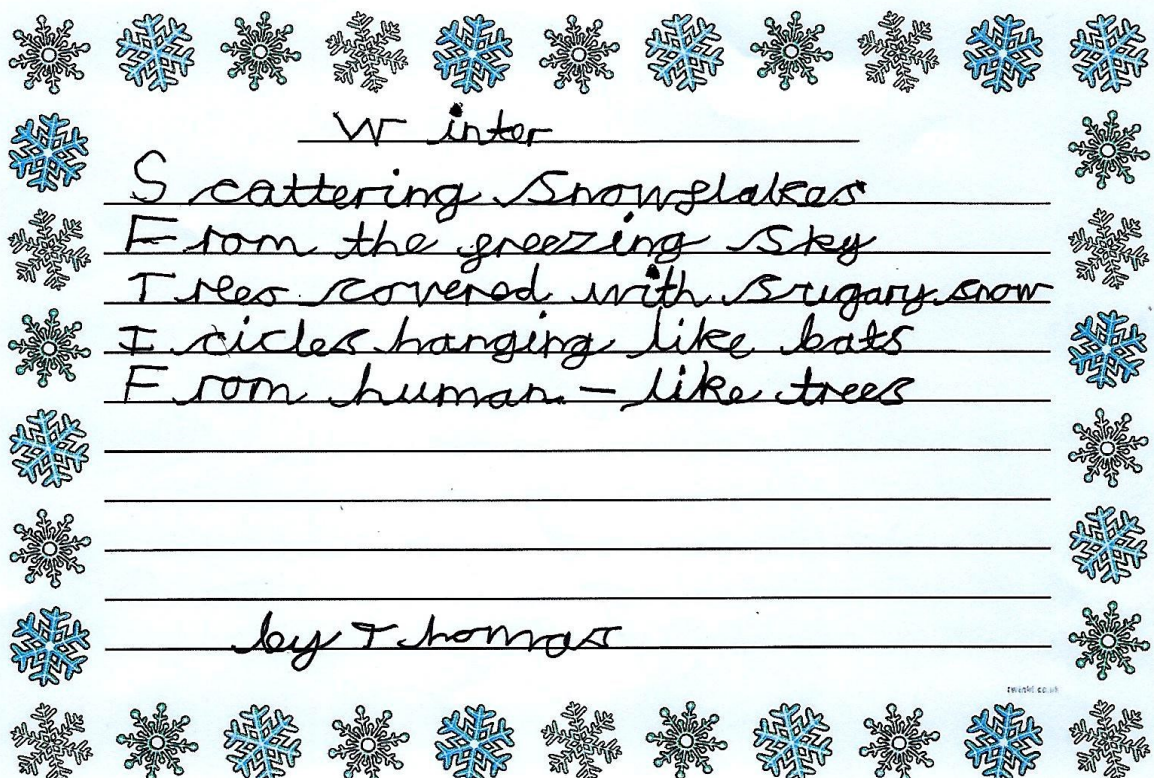 Winter
Scattering Snowflakes
From the freezing Sky
Trees covered with Sugary snow
Icicles hanging like bats
From human-like trees
by Thomas
twinkl.co.uk